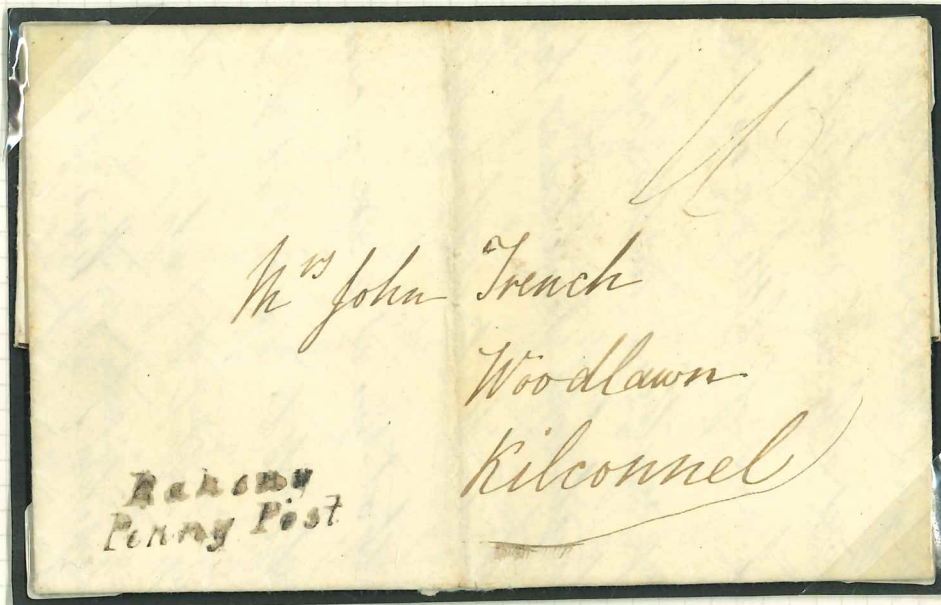 Mrs John Trench
Woodlawn
Kilconnel
Rahony
Penny Post